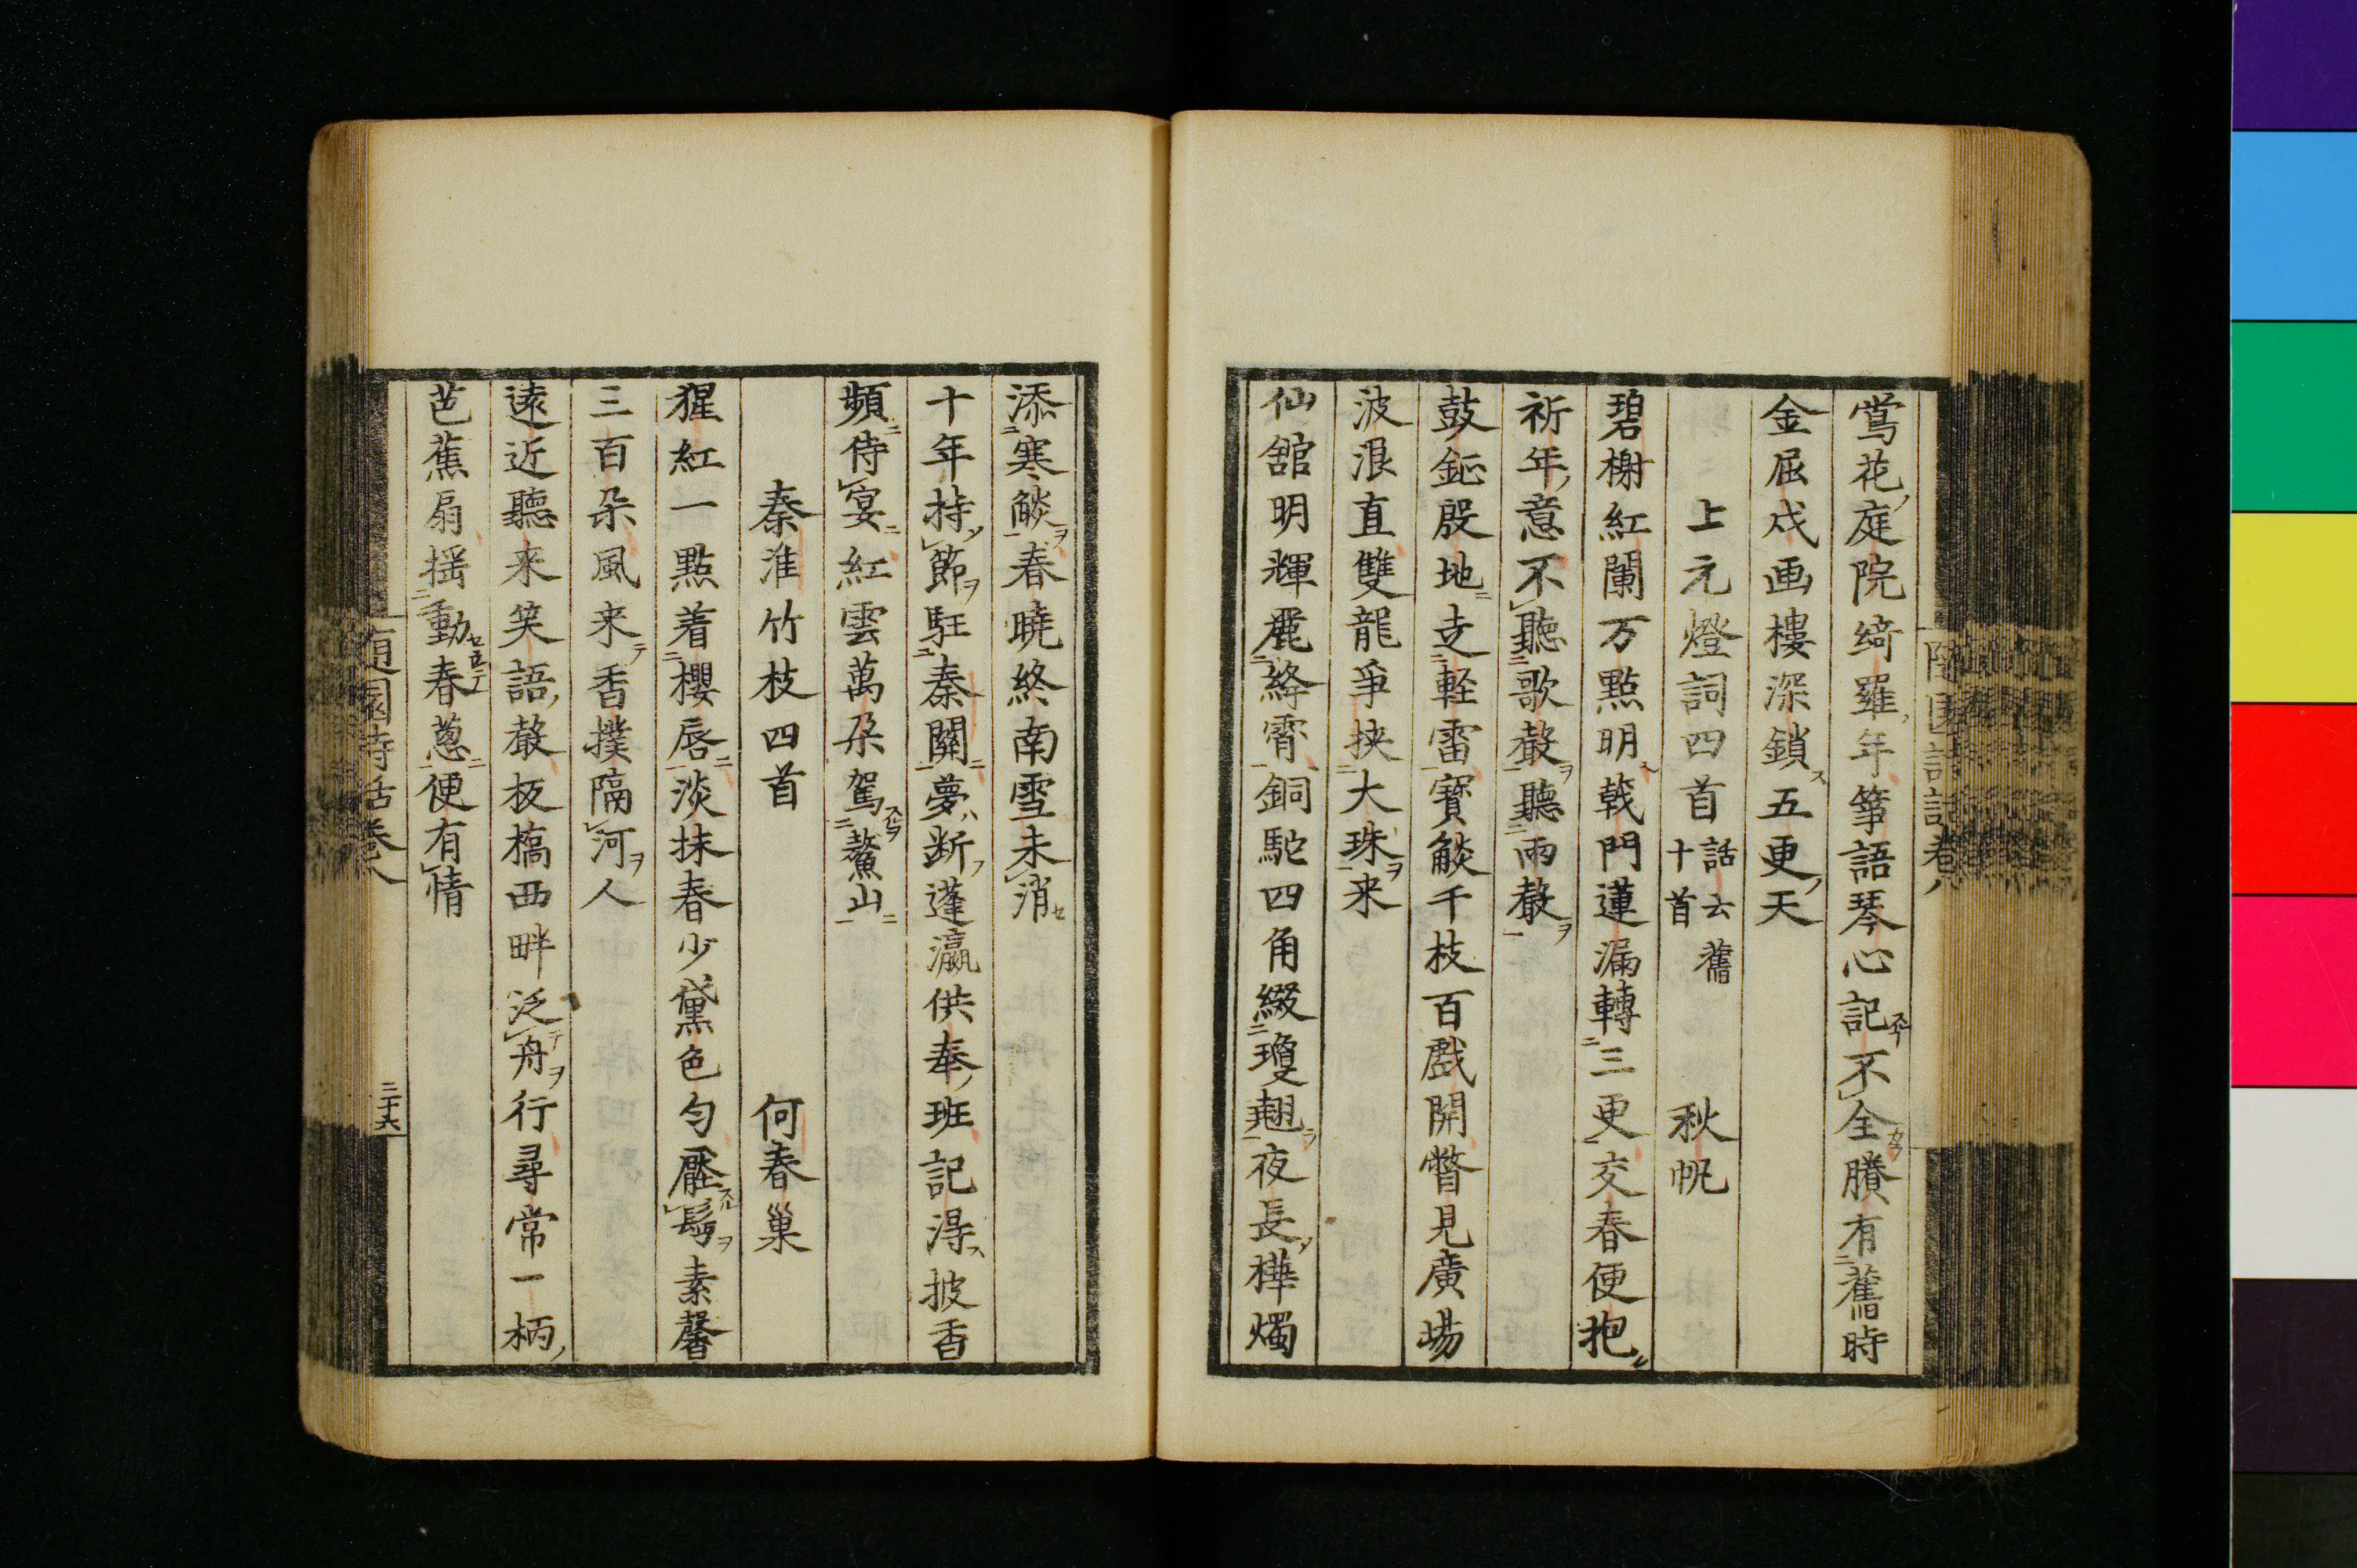 鶯花庭院綺羅年箏語琴心記不全賸有舊時
金屈戍画樓深鎖五更天
上元燈詞四首 話云舊十首 秋帆
碧榭紅闌万點明戟門蓮漏轉三更交春便抱
祈年意不聽歌聲聽雨聲
鼓鉦殷地走輕雷寶燄千枝百戲開瞥見廣場
波浪直雙龍爭挾大珠来
仙館明輝麗絳霄銅駝四角綴瓊翹夜長樺燭
添寒燄春曉終南雪未消
十年持節駐秦關夢断蓬瀛供奉班記得披香
頻侍宴紅雲萬朶駕鰲山
秦淮竹枝四首 何春巢
猩紅一點着櫻唇淡抹春少黛色勻壓髩素馨
三百朶風来香撲隔河人
遠近聽来笑語聲板橋西畔泛舟行尋常一柄
芭蕉扇揺動春蔥便有情
隨園詩話卷八
二十六